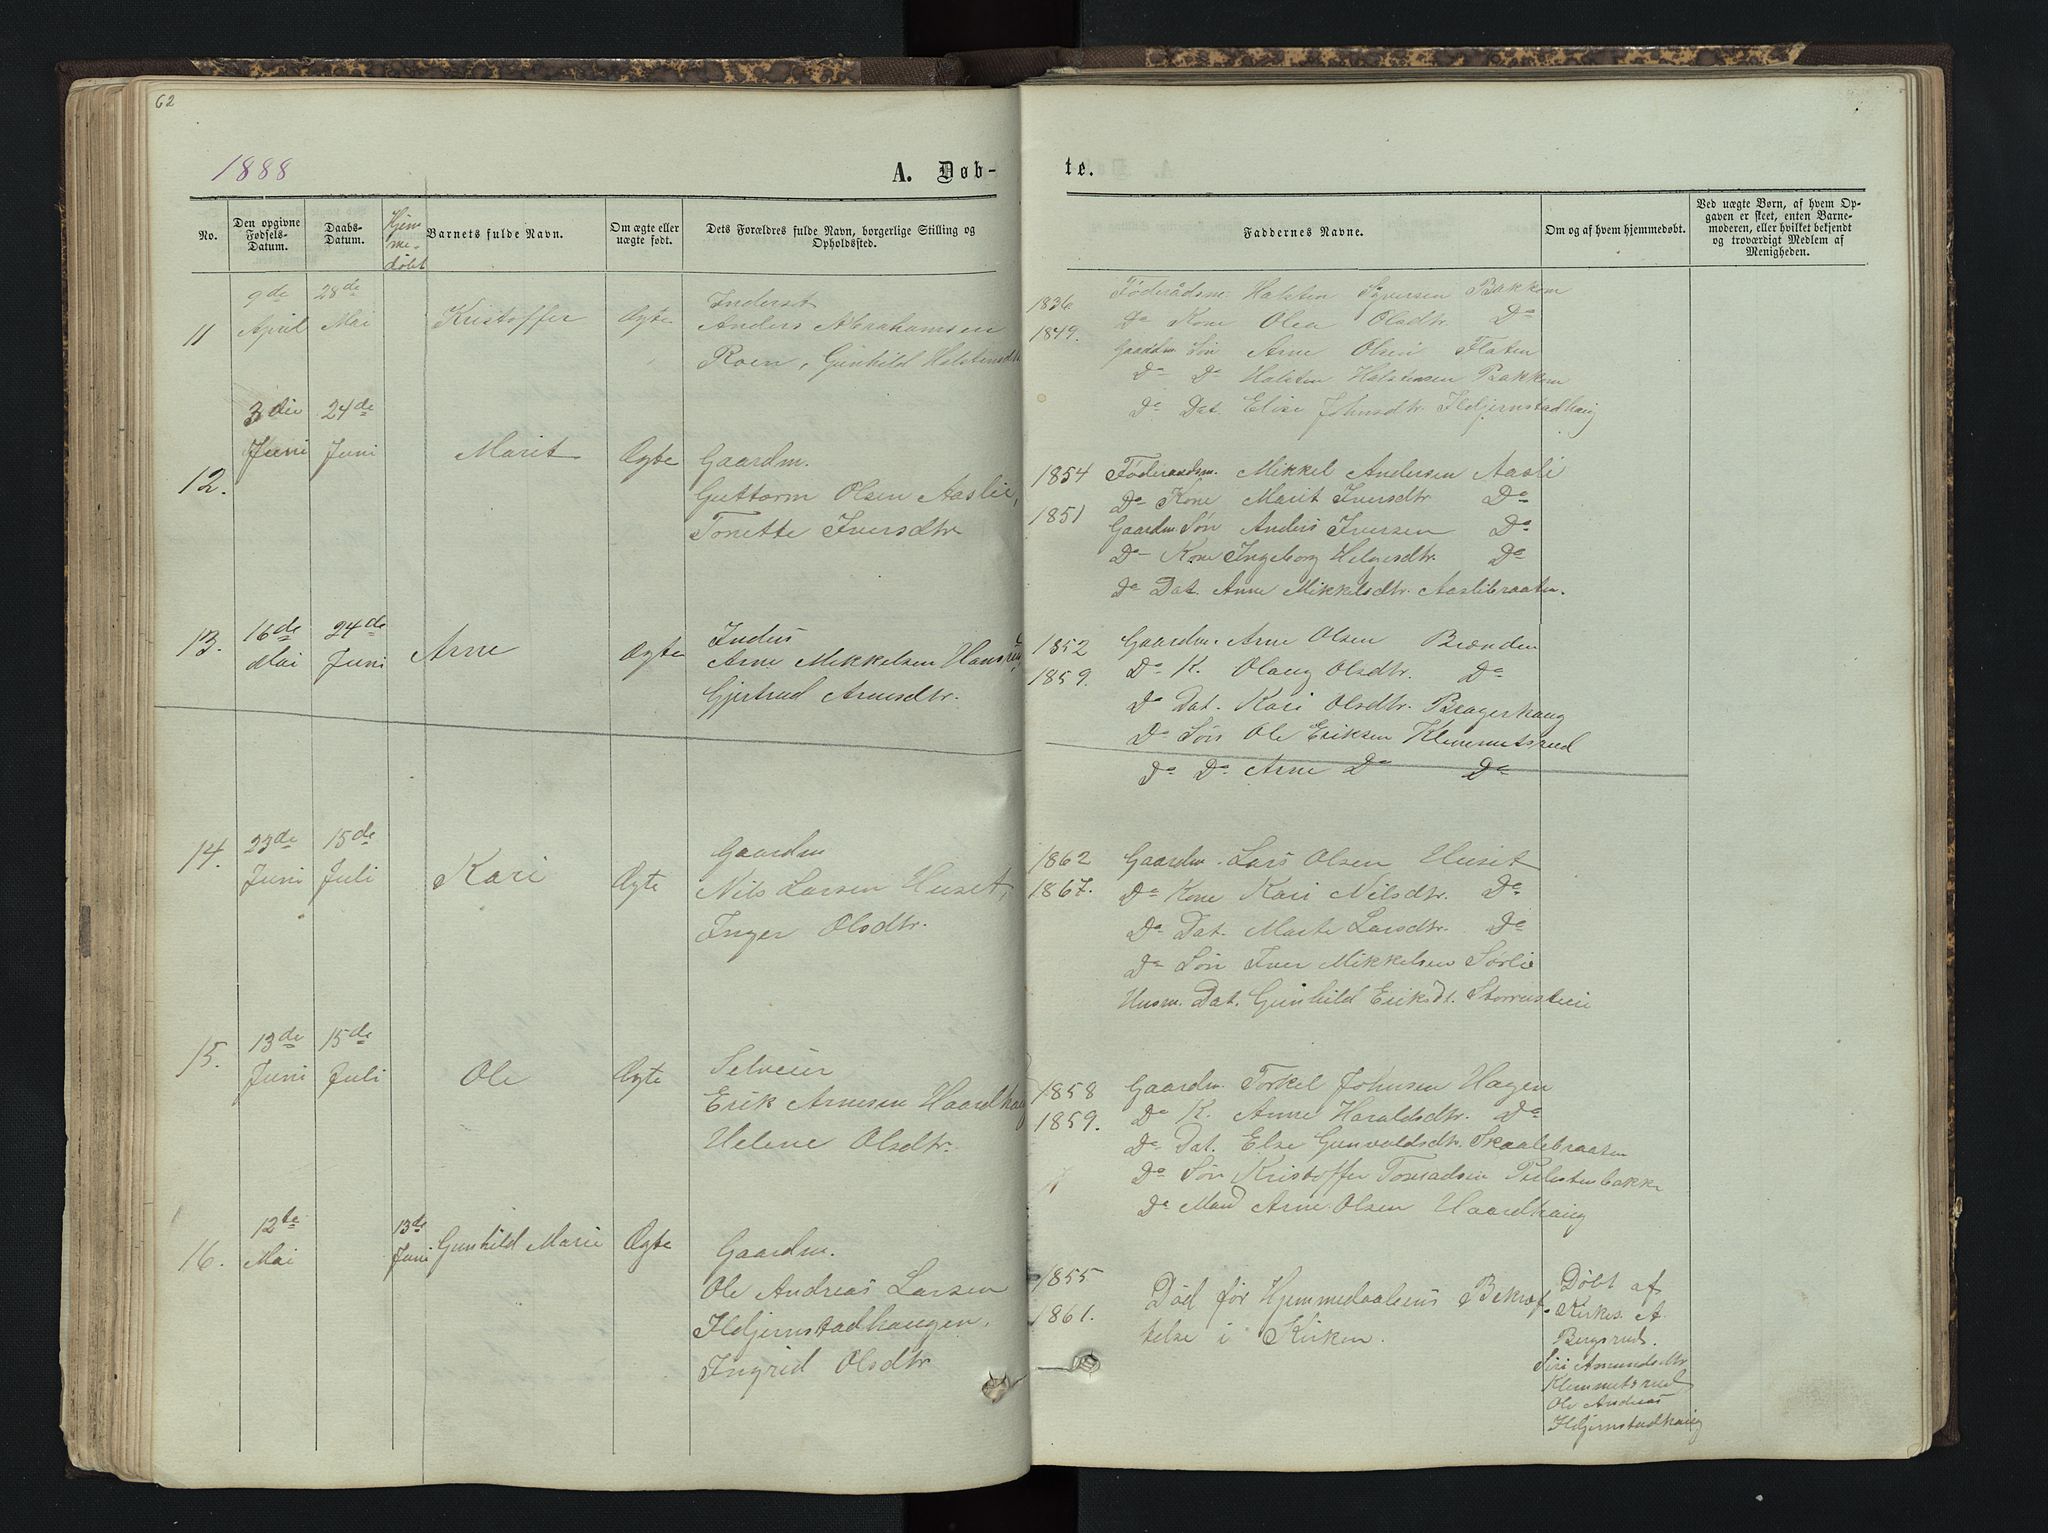 62
1888
A. Døb-
te.
No.
Den opgivne Fødsels-Datum.
Daabs-Datum.
Hjem-me-døbt
Barnets fulde Navn.
Om ægte eller uægte født.
Dets Forældres fulde Navn, borgerlige Stilling og Opholdssted.
Faddernes Navne.
Om og af hvem hjemmedøbt.
Ved uægte Børn, af hvem Opgaven er skeet, enten Barnemoderen, eller hvilket bekjendt og troværdigt Medlem af Menigheden.
11
9de April
28de Mai
Kristoffer
Ægte
Inderst
Anders Abrahamsen
Roen, Gunhild Halstensdtr
1836
1849.
Føderådsm. Halsten Syversen Bakken
Do Kone Olea Olsdtr. Do
Gaardm. Søn Arne Olsen Flaten
Do Do Halsten Halstensen Bakken
Do Dat. Elise Johnsdtr. Ildjernstadhaug
12.
3die Juni
24de Juni
Marit
Ægte
Gaardm.
Guttorm Olsen Aaslie,
Tonette Iversdtr
1854
1851
Føderaadsm. Mikkel Andersen Aasli
Do Kone Marit Iversdtr Do
Gaardm Søn Anders Iversen Do
Do Kone Ingeborg Helgesdtr. Do
Do Dat. Anne Mikkelsdtr. Aaslibraaten.
13.
16de Mai
24de Juni
Arne
Ægte
Inders
Arne Mikkelsen
Gjertrud Arnesdtr.
1852
1859.
Gaardm. Arne Olsen Brænden
Do K. Olaug Olsdtr. Do
Do Dat. Kari Olsdtr. Bragerhaug
Do Søn Ole Eriksen Klemmetsrud
Do Do Arne Do Do
14.
23de Juni
15de Juli
Kari
Ægte
Gaardm
Nils Larsen Huset,
Inger Olsdtr.
1862
1867.
Gaardm. Lars Olsen Huset
Do Kone Kari Nilsdtr. Do
Do Dat. Marte Larsdtr. Do
Do Søn Iver Mikkelsen Sørlie
Husm. Dat. Gunhild Eriksdt.
15.
13de Juni
15de Juli
Ole
Ægte
Selveier
Erik Arnesen Haardhaug
Helene Olsdtr.
1858
1859.
Gaardm. Torkel Johnsen Hagen
Do K. Anne Haraldsdtr. Do
Do Dat. Else Gunvaldsdtr. Skaalebraaten
Do Søn Kristoffer
Do Mand Arne Olsen Haardhaug
16.
12te Mai
13de Juni
Gunhild Marie
Ægte
Gaardm.
Ole Andreas Larsen
Ildjernstadhaugen.
Ingrid Olsdtr
1855
1861.
Død før Hjemmedaabens Bekræf-
telse i Kirken.
Døbt af
Kirkes. A
Bergsrud.
Siri Amundsdtr
Klemmetsrud
Ole Andreas
Ildjernstadhaug